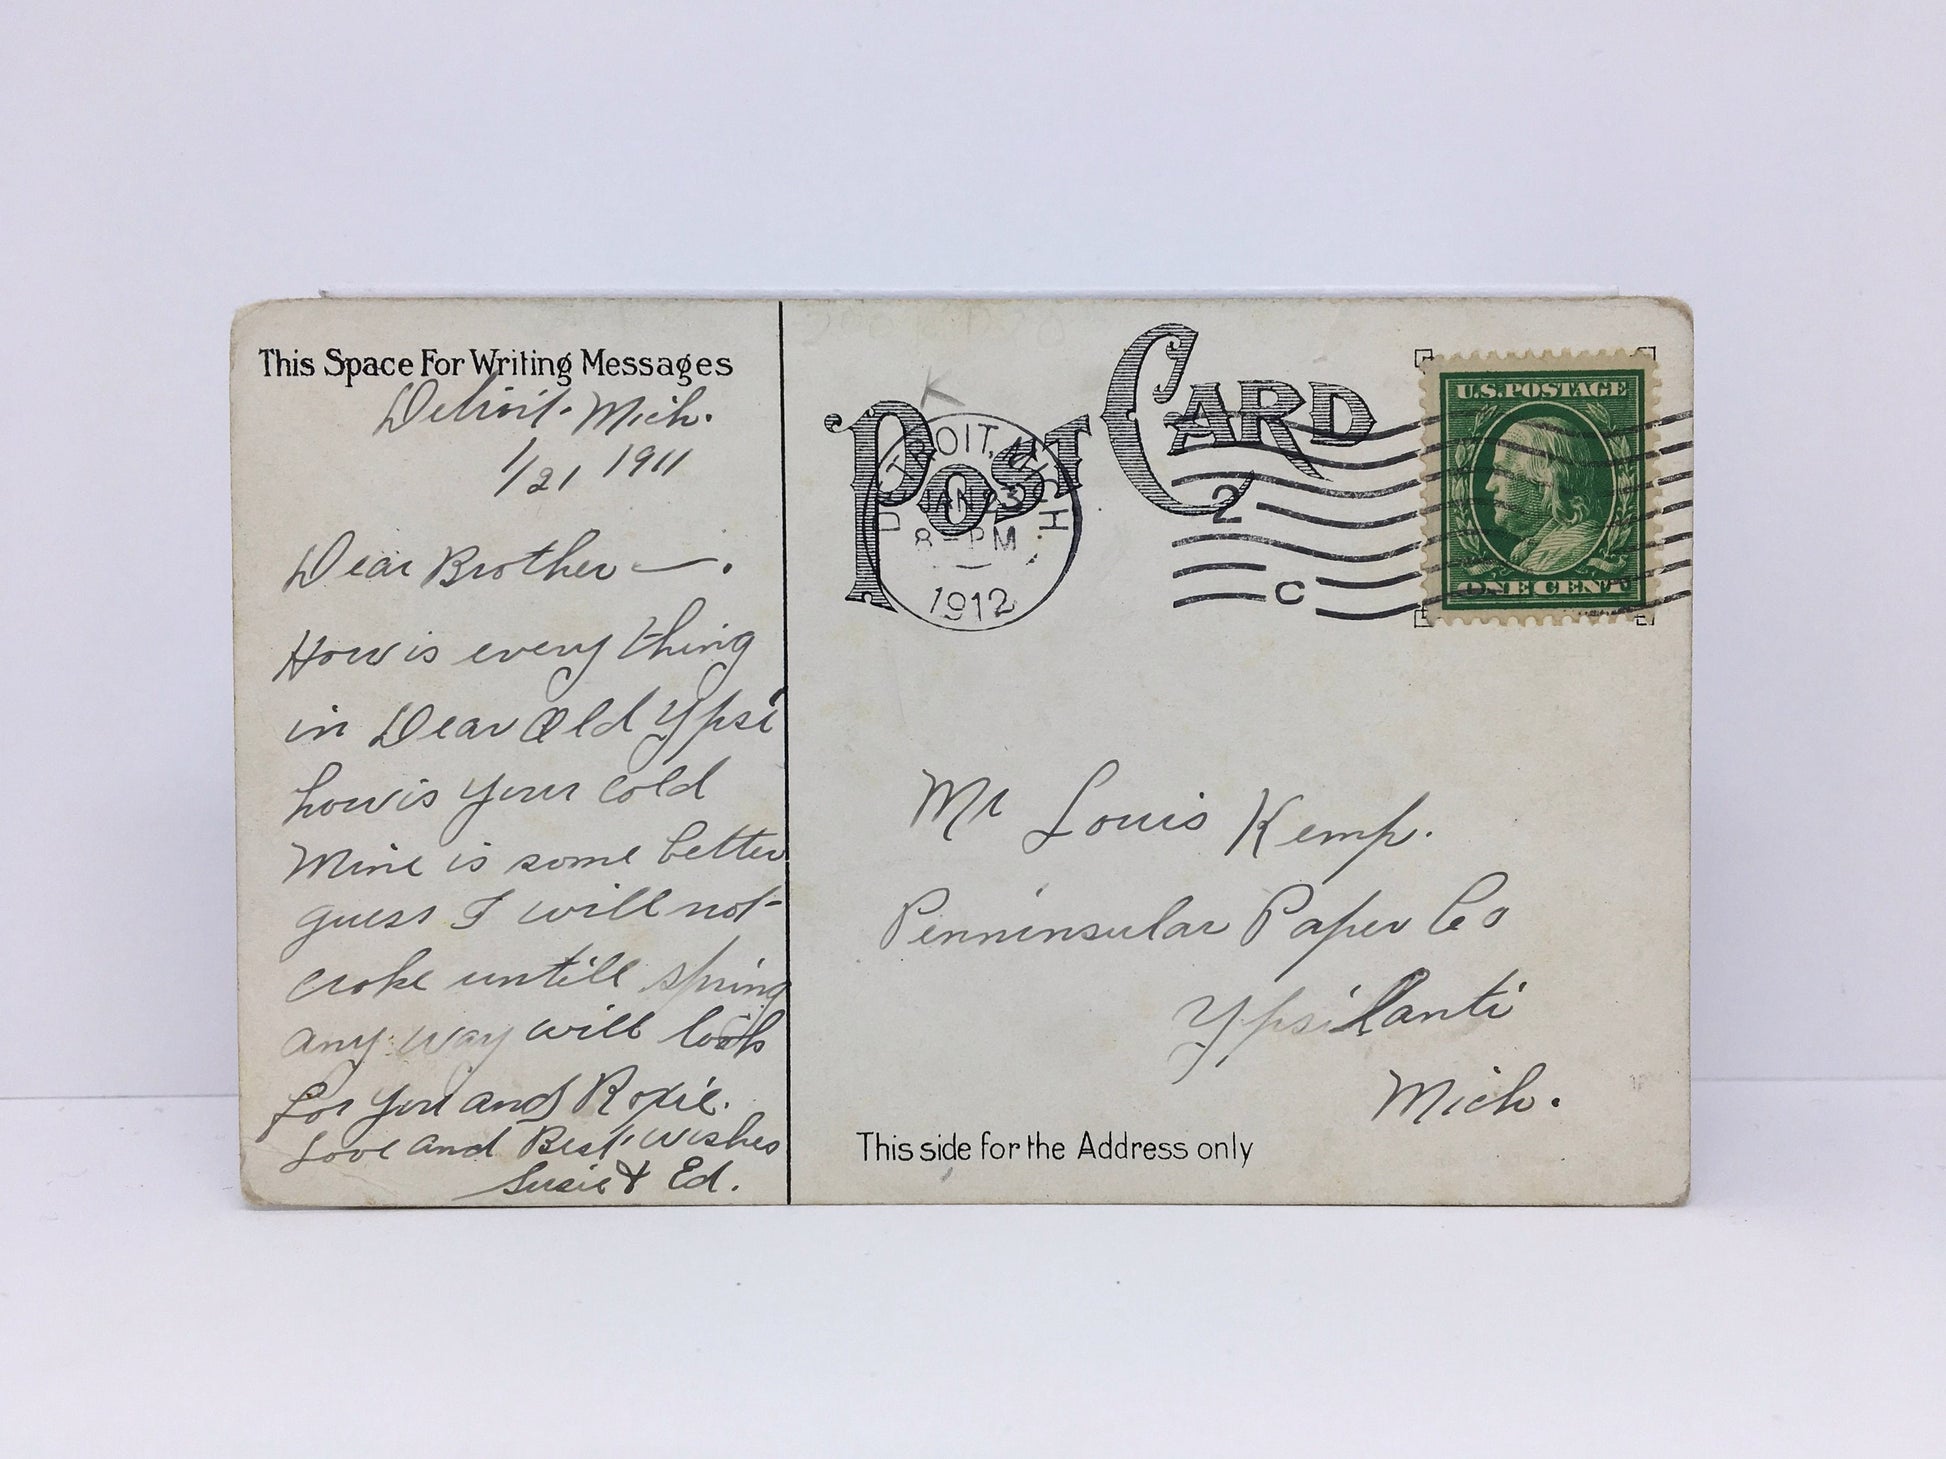 This Space For Writing Messages
Detroit. Mich.
1/21 1911
Dear Brother —.
How is every thing
in Dear Old Ypsi
how is your cold
Mine is some better
guess I will not
croke untill spring
any way will look
for you and Roxie.
Love and Best wishes
Susie & Ed.
POST CARD
K
DETROIT, MICH.
JAN 23
8 - PM
1912
2
C
U.S. POSTAGE
ONE CENT
Mr Louis Kemp.
Penninsular Paper Co
Ypsilanti
Mich.
This side for the Address only